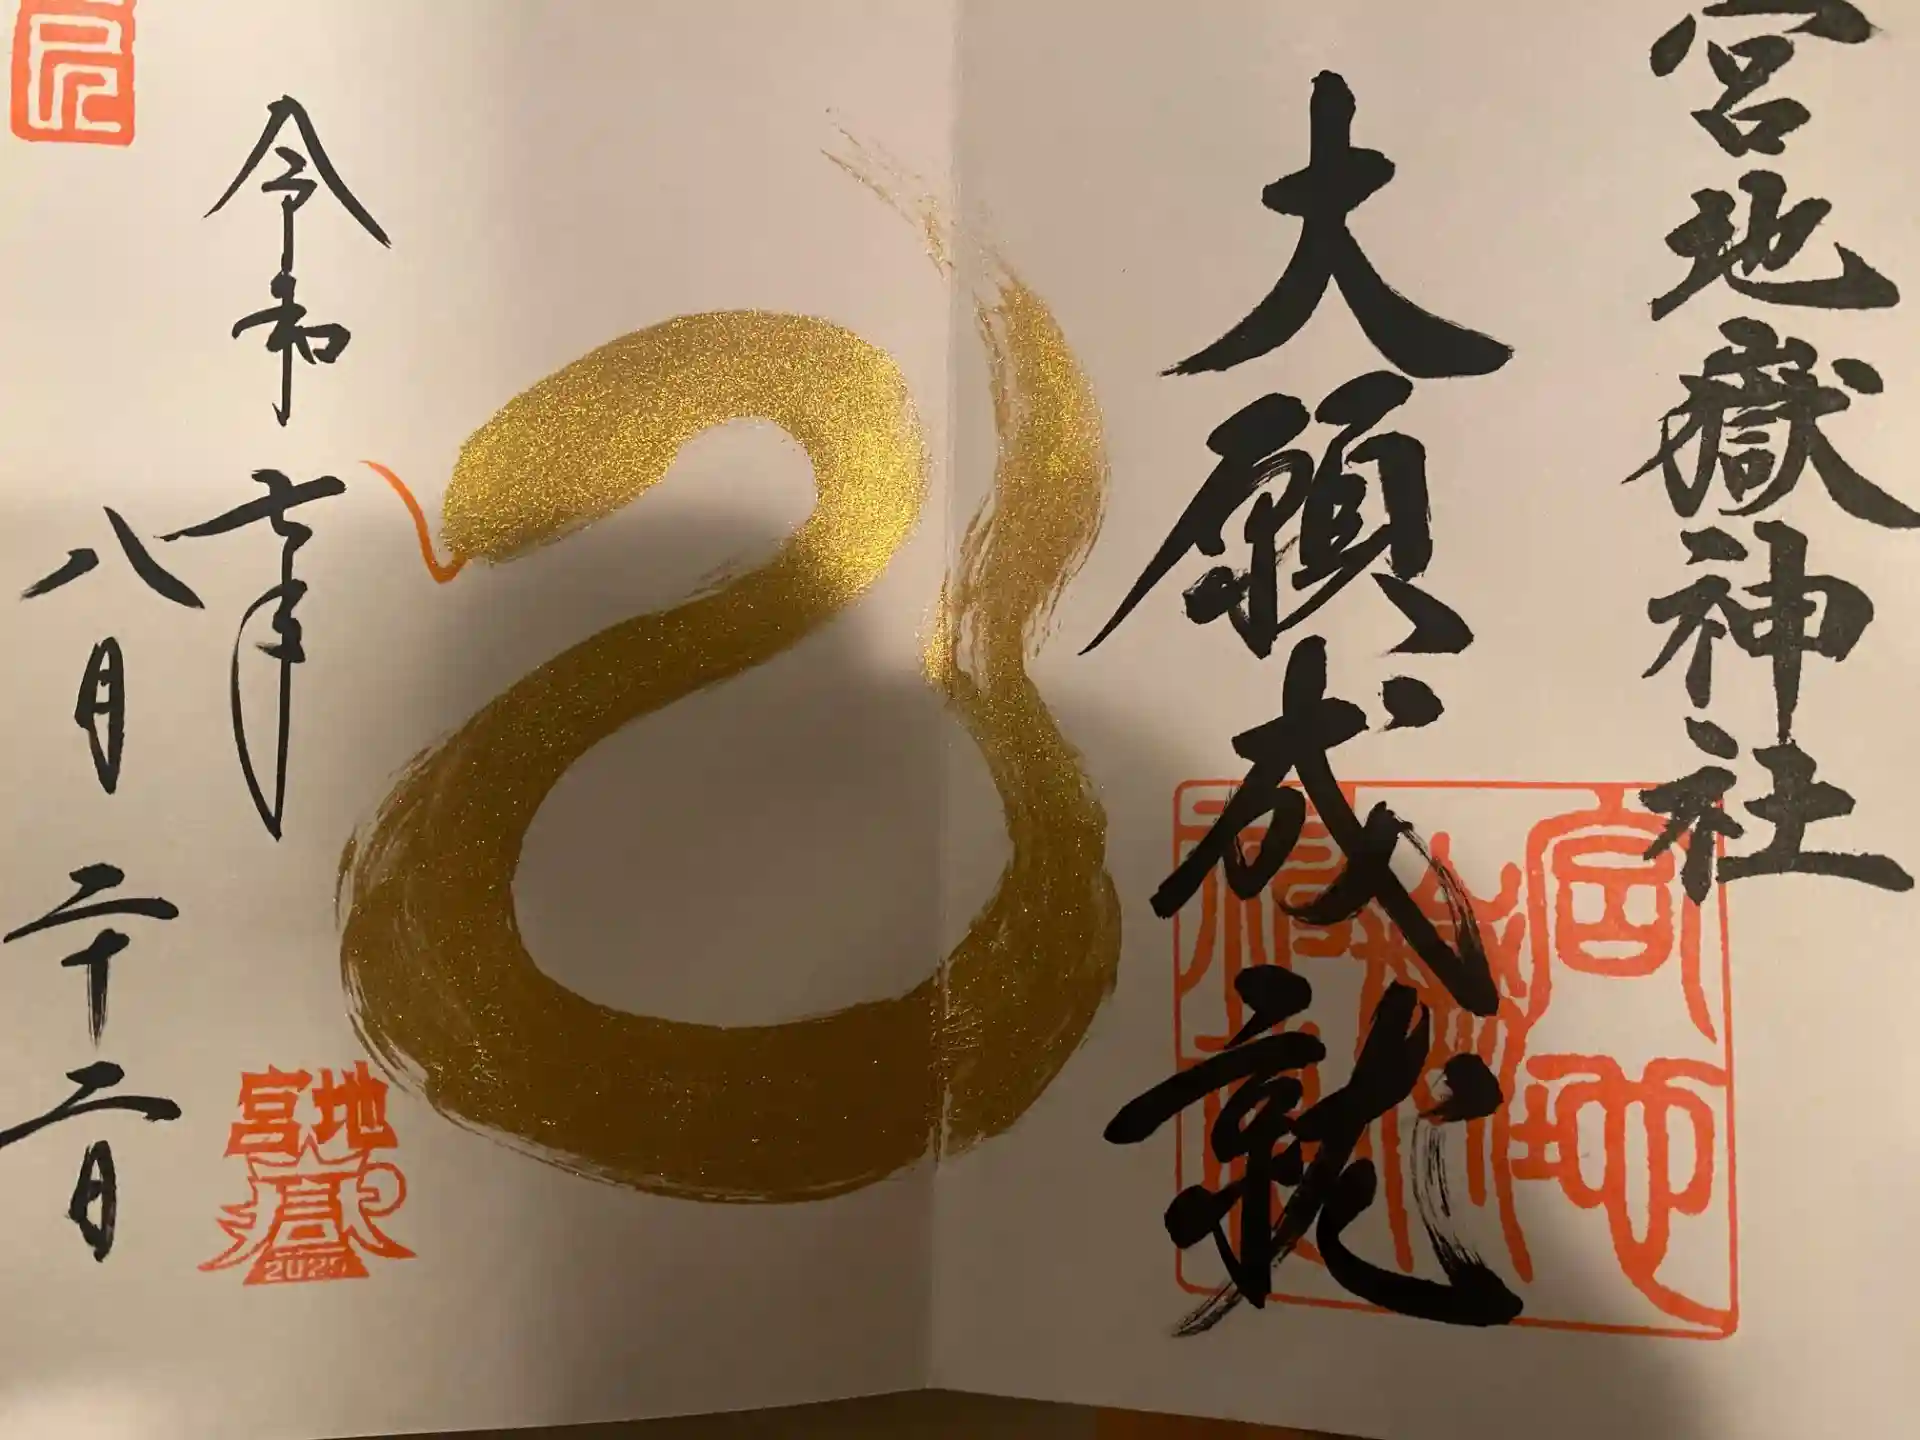 宮地嶽神社
大願成就
宮地嶽神社
令和七年
八月二十二日
宮地嶽
2025
巳